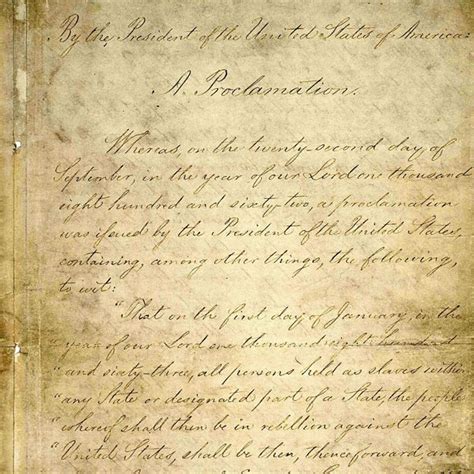 By the President of the United States of America:
A Proclamation.
Whereas, on the twenty-second day of
September, in the year of our Lord one thousand
eight hundred and sixty two, a proclamation
was issued by the President of the United States,
containing, among other things, the following,
to wit:
"That on the first day of January, in the
"year of our Lord one thousand eight hundred
"and sixty-three, all persons held as slaves within
"any State or designated part of a State, the people
"whereof shall then be in rebellion against the
"United States, shall be then, thenceforward, and